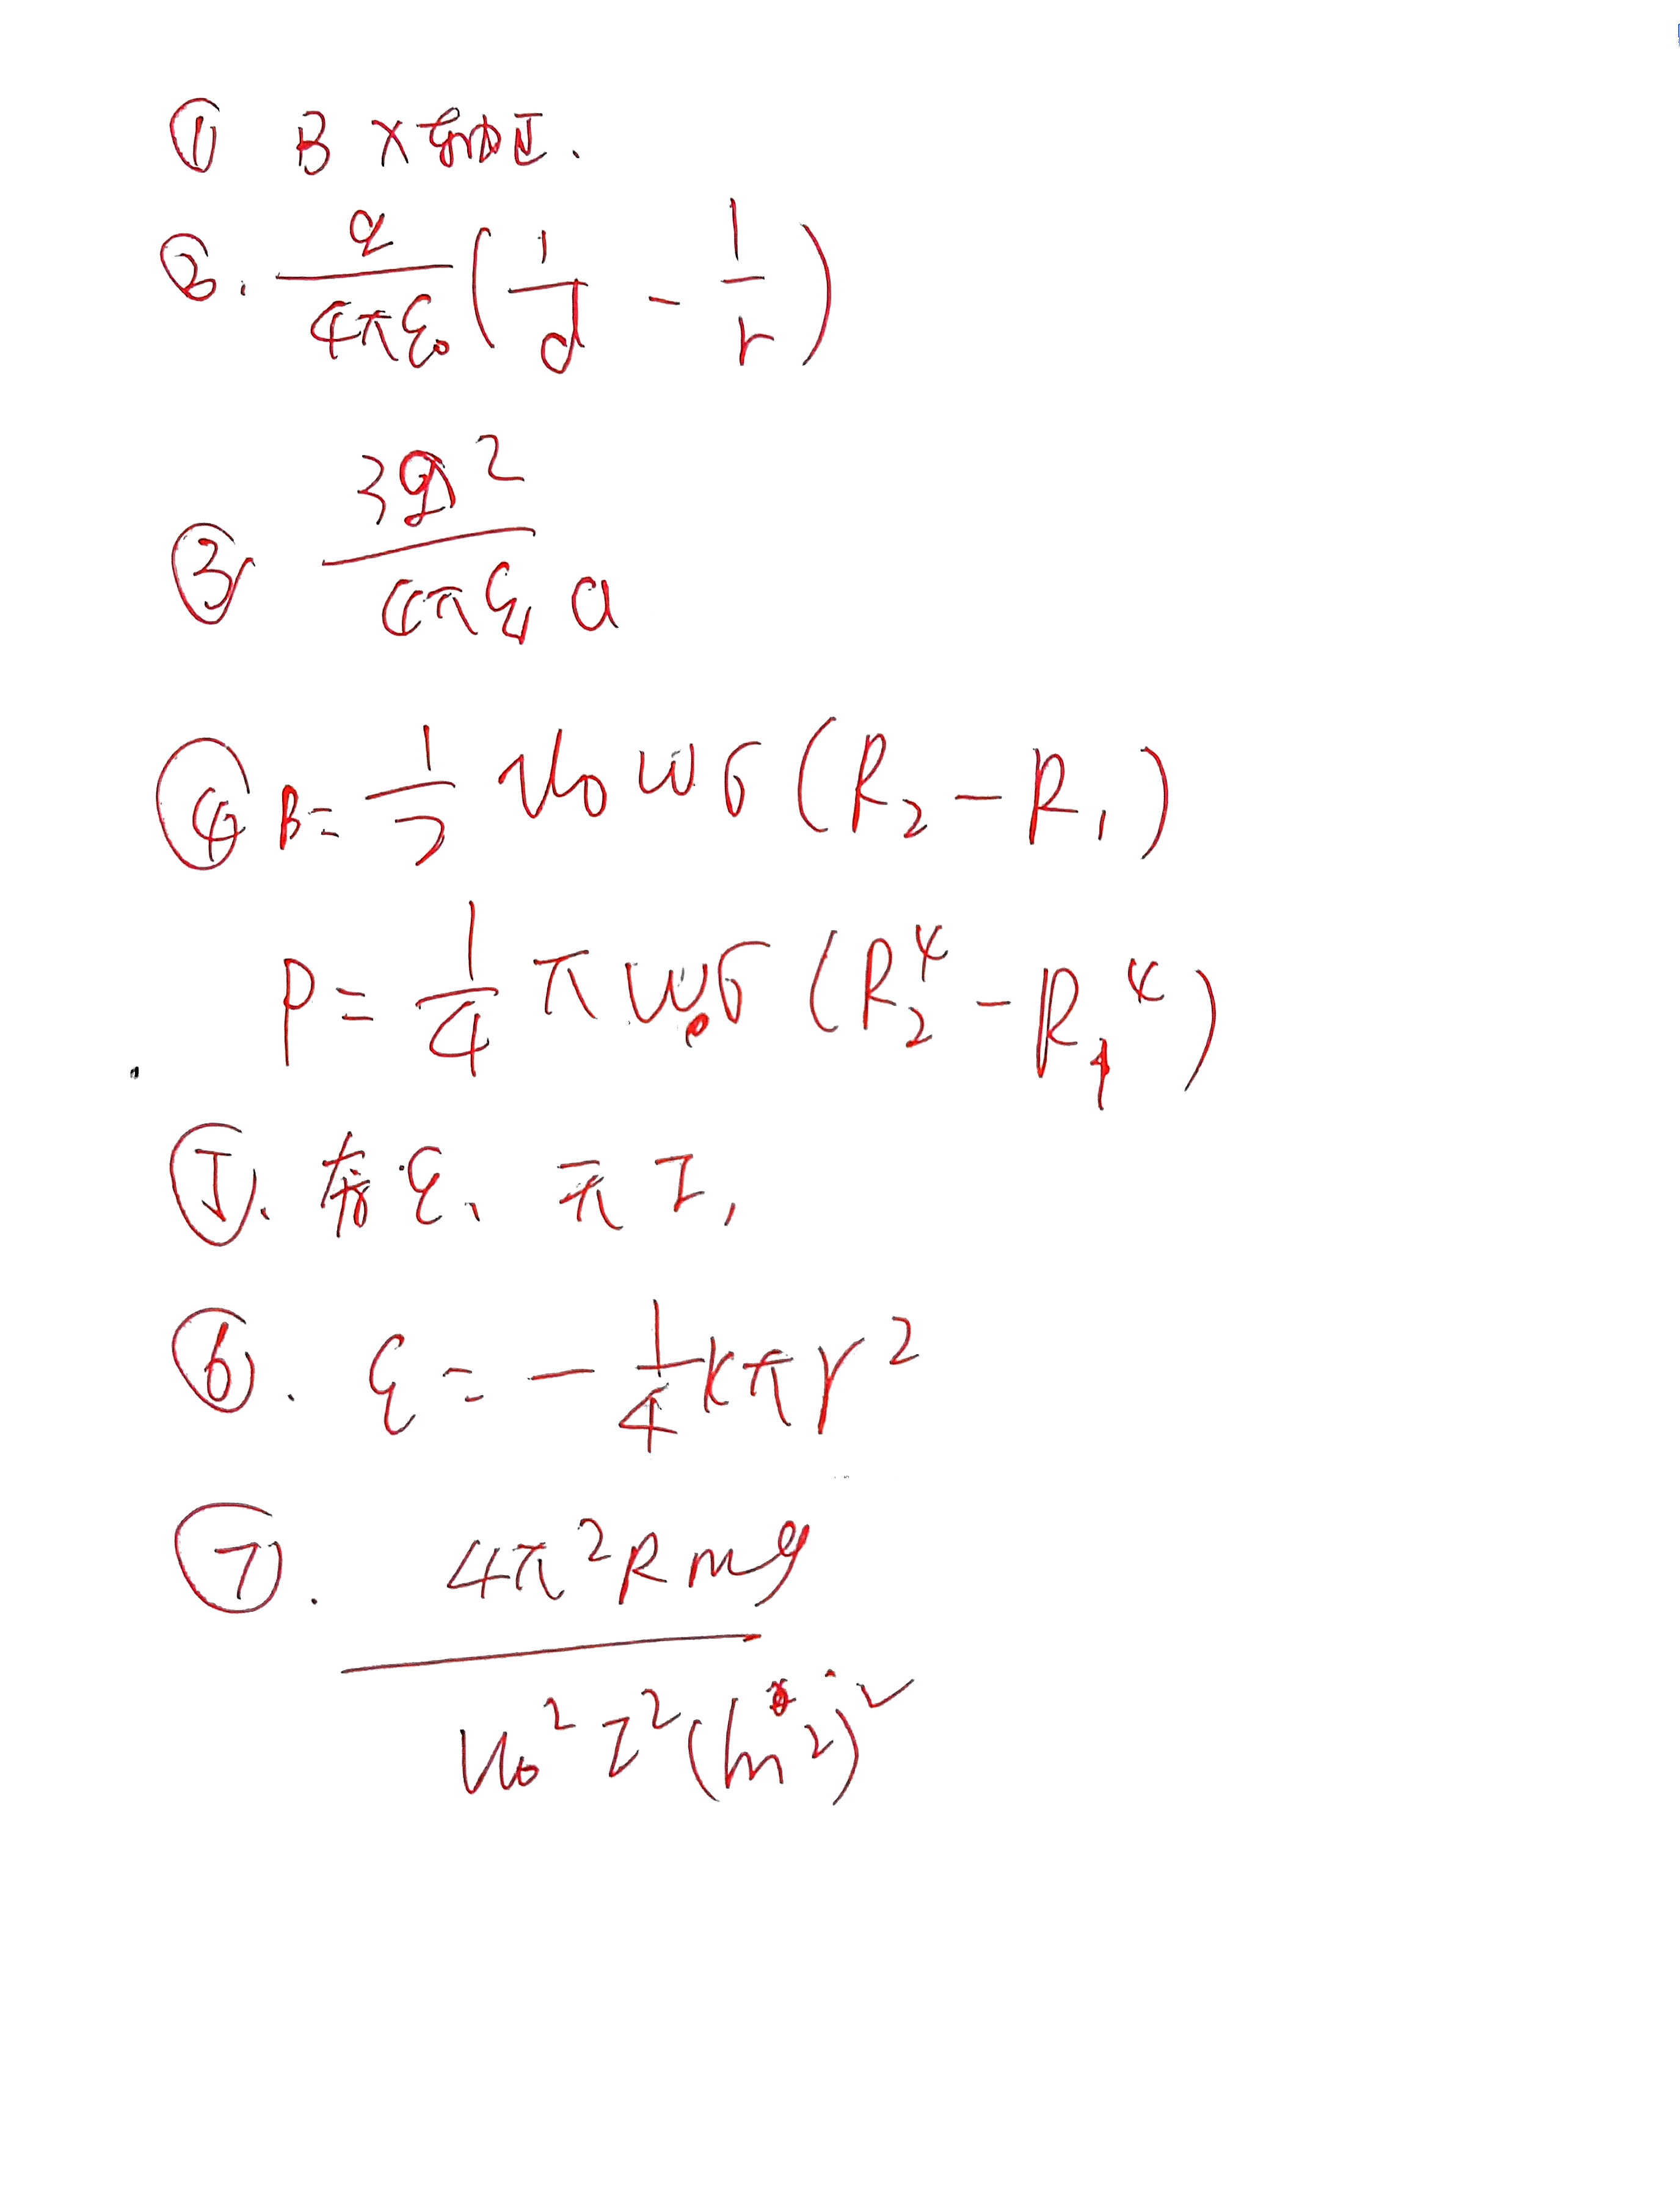 ① B X轴正.
②. q/(4πε₀) (1/d - 1/r)
③. 3q²/(4πε₀a)
④ B = 1/2 μ₀ωσ(R₂ - R₁)
P = 1/4 πωσ(R₂⁴ - R₁⁴)
⑤. 有ε、无I,
⑥. ε = -1/4 kπr²
⑦. 4π²Rmg/(μ₀²I²(ln2)²)